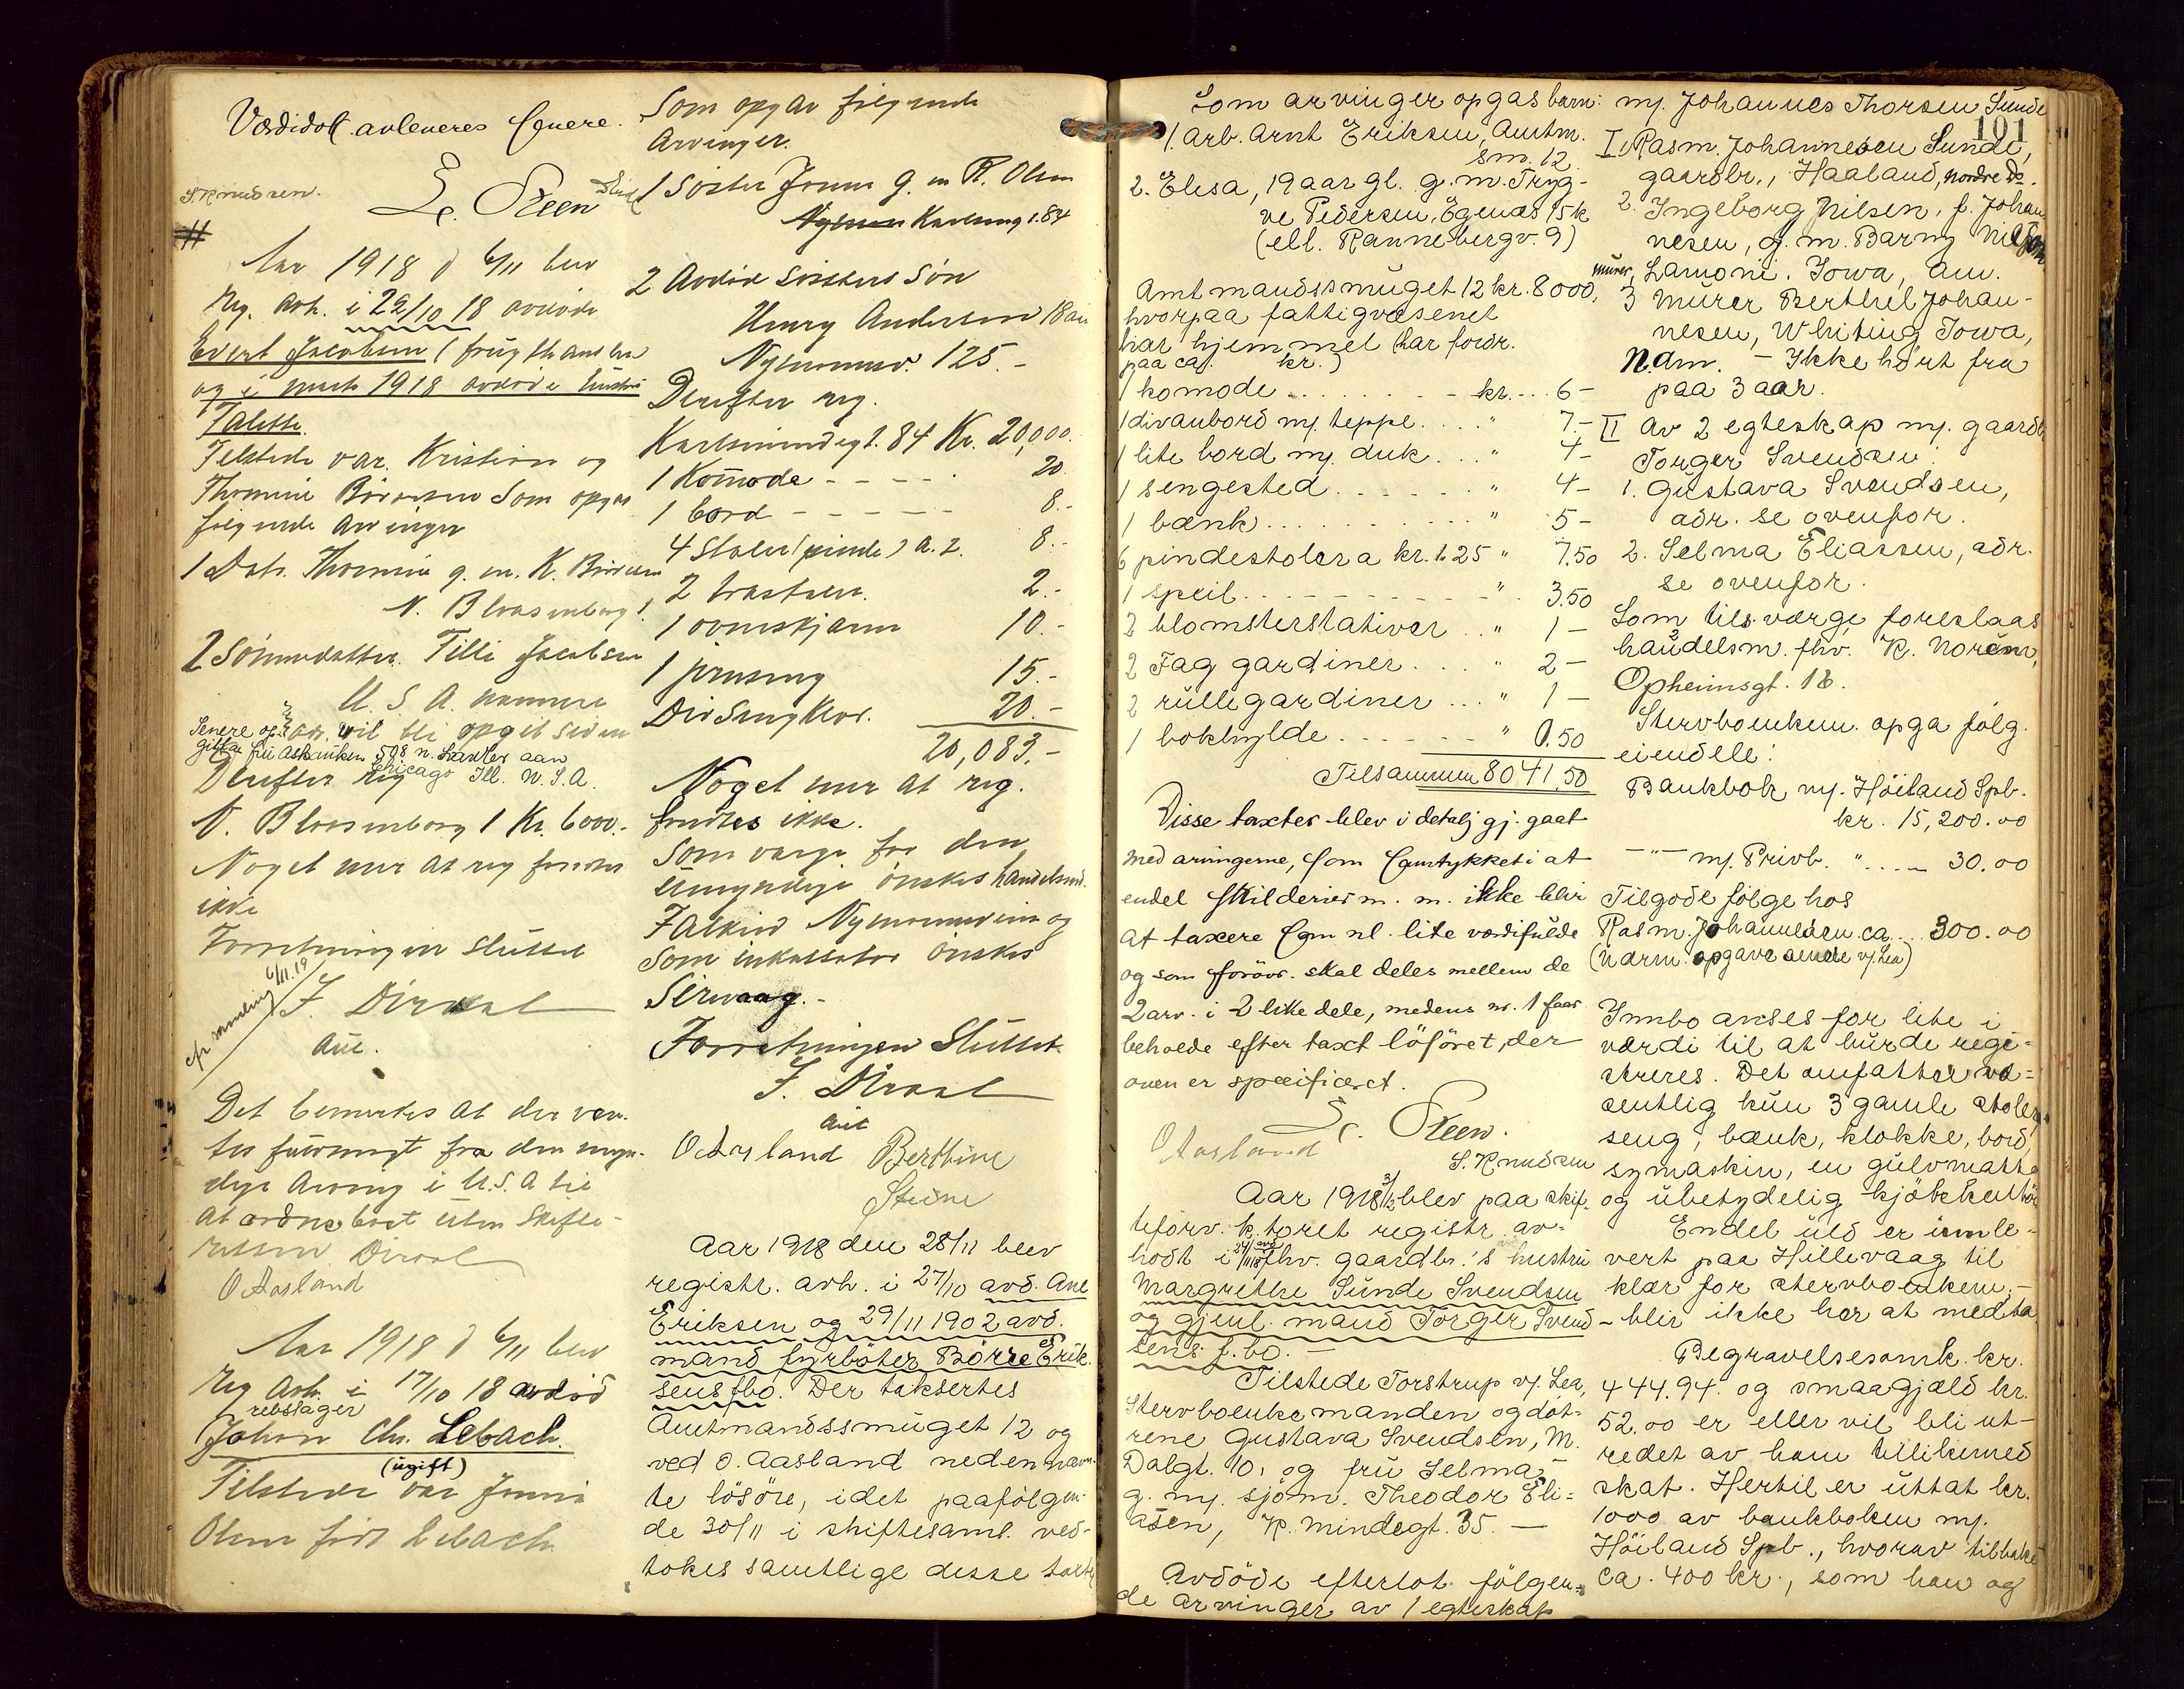 Værdidok. avleveres senere.
S. Knudsen. E. Steen
Aar 1918 d 6/11 blev
reg. avh. i 22/10 18 avdøde
Evert Jacobsen
og i mars 1918 avdøde hustru
Talette.
Tilstede var Kristian og
Thomine som opgav
følgende arvinger
1 Datr. Thomine g. m. K.
N. Blaasenborg 1
2 Sønnedatter Tilli Jacobsen
U. S. A. nærmere
adr. vil bli opgit siden
Senere opgit
508 n.
Chicago Ill. U. S. A.
Derefter reg
N. Blaasenborg 1 Kr. 6000.-
Noget mer at reg fandtes
ikke
Forretningen sluttet
6/11.18
J. Dirdal
Aut.
Det bemerkes at der ven-
tes fuldmagt fra den myn-
dige Arving i U.S.A til
at ordne boet uten Skifte-
retten Dirdal
O Aasland
Aar 1918 d 6/11 blev
reg avh. i 17/10 18 avdød
rebslager
Johan Chr. Lebach.
(ugift)
Tilstede var
Olsen født Lebach
Som opgav følgende
Arvinger.
1 Søster g. m R. Olsen
Karlsmg 1. 84
2 Avdød søsters Søn
Henry Andersen 18 aar
125.-
Derefter reg.
Karlsmindegt. 84 Kr. 20,000.
1 Komode - - - - 20
1 bord - - - - - 8.-
4 Stoler (pinde) a. 2. 8.-
2 2.-
1 ovnskjærm 10.-
1 15.-
Div Sengklær. 20.-
20,083.-
Noget mer at reg.
fandtes ikke.
Som verge for den
umyndige ønskes handelsmd.
og
som inkassator ønskes
Forretningen Sluttet
J. Dirdal
Aut
O Aasland Berthine
Aar 1918 den 28/11 blev
registr. avh. i 27/10 avd. Ane
Eriksen og 29/11 1902 avd.
mand fyrbøter Børre Erik-
sens fbo. Der taksertes
Amtmandssmuget 12 og
ved O. Aasland nedennævn-
te løsøre, idet paafølgen-
de 30/11 i skiftesaml. ved-
tokes samtlige disse takster
Som arvinger opgas barn:
1. Arb. Arnt Eriksen, Amtm.
sm. 12
2. Elisa, 19 aar gl. g. m. Tryg-
ve Pedersen, Egenæs 15 k
(ell. Rannebergv. 9)
Amtmandssmuget 12 kr. 8000,
hvorpaa fattigvæsenet
har hjemmel (har fordr.
paa ca. kr. )
1 komode . . . . . . kr. . . . 6 -
1 divanbord m/ teppe . . . . " 7.-
1 lite bord m/ duk . . . " 4 -
1 sengested . . . . . . . " 4 -
1 bænk . . . . . . . . . " 5 -
6 pindestoler a kr. 1.25 " 7.50
1 speil . . . . . . . . . " 3.50
2 blomsterstativer . . " 1 -
2 Fag gardiner . . . . " 2 -
2 rullegardiner . . . " 1 -
1 bokhylde . . . . . . . " 0.50
Tilsammen 8041,50
Disse taxter blev i detalj gj. gaat
med arvingerne, som samtykket i at
endel skilderier m. m. ikke blir
at taxere som nl. lite værdifulde
og som forøvr. skal deles mellem de
2 arv. i 2 like dele, medens nr. 1 faar
beholde efter taxt løsøret, der
oven er specificert.
E. Steen.
O Aasland
S. Knudsen
Aar 1918 3/12 blev paa skif-
teforv. ktoret registr. av-
holdt i 24/11 18 avd fhv. gaardbr.'s hustru
Margrethe Sunde Svendsen
og gjenl. mand Torger Svend-
sens f.bo. -
Tilstede Torstrup v/ Lea,
Stervboenkemanden og døt-
rene Gustava Svendsen, M.
Dalgt. 10, og fru Selma
g. m/ sjøm. Theodor Eli-
asen, K. Mindegt. 35. -
Avdøde efterlot følgen-
de arvinger av 1 egteskap
101
m/ Johannes Thorsen Sunde
I 1. Rasm. Johannesen Sunde,
gaardbr., Haaland, nordre D.
2. Ingeborg Nilsen, f. Johan
nesen, g. m. Barny Nilsen
murer, Lamoni. Iowa, Am.
3 Murer Berthel Johan-
nesen, Whiting Iowa,
N. Am. - Ikke hørt fra
paa 3 aar.
II Av 2 egteskap m/ gaardb
Torger Svendsen:
1. Gustava Svendsen,
adr. se ovenfor.
2. Selma Eliassen, adr.
se ovenfor.
Som tils.værge foreslaas
handelsm. fhv. K. Norem,
Opheimsgt. 18.
Stervboenkem. opga følg.
eiendele:
Bankbok m/ Høiland Spb.
kr. 15,200.00
-"- m/ Privb. " . . . . 30.00
Tilgode følge hos
Rasm. Johannesen ca . . . 300.00
(Nærm. opgave senere v/ Lea)
Innbo anses for lite i
værdi til at burde regi-
streres. Det omfatter væ-
sentlig kun 3 gamle stoler,
seng, bænk, klokke, bord,
symaskin, en gulvmatte
og ubetydelig kjøkkentøi
Endel uld er innle-
vert paa Hillevaag til
klær for stervboenkem. -
- blir ikke her at medta
Begravelsesomk. kr.
444.94. og smaagjæld kr.
52.00 er eller vil bli ut-
redet av ham tillikemed
skat. Hertil er uttat kr.
1000 av bankboken m/.
Høiland Spb., hvorav tilbake
ca. 400 kr., som han og